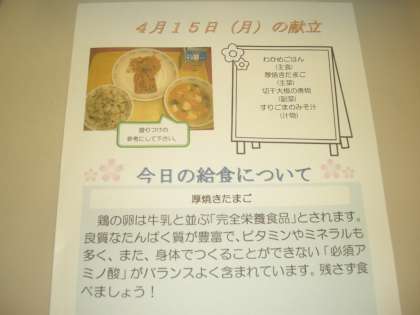 4月15日(月)の献立
わかめごはん
(主食)
厚焼きたまご
(主菜)
切干大根の煮物
(副菜)
すりごまのみそ汁
(汁物)
盛りつけの
参考にして下さい。
今日の給食について
厚焼きたまご
鶏の卵は牛乳と並ぶ「完全栄養食品」とされます。
良質なたんぱく質が豊富で、ビタミンやミネラルも
多く、また、身体でつくることができない「必須ア
ミノ酸」がバランスよく含まれています。残さず食
べましょう！